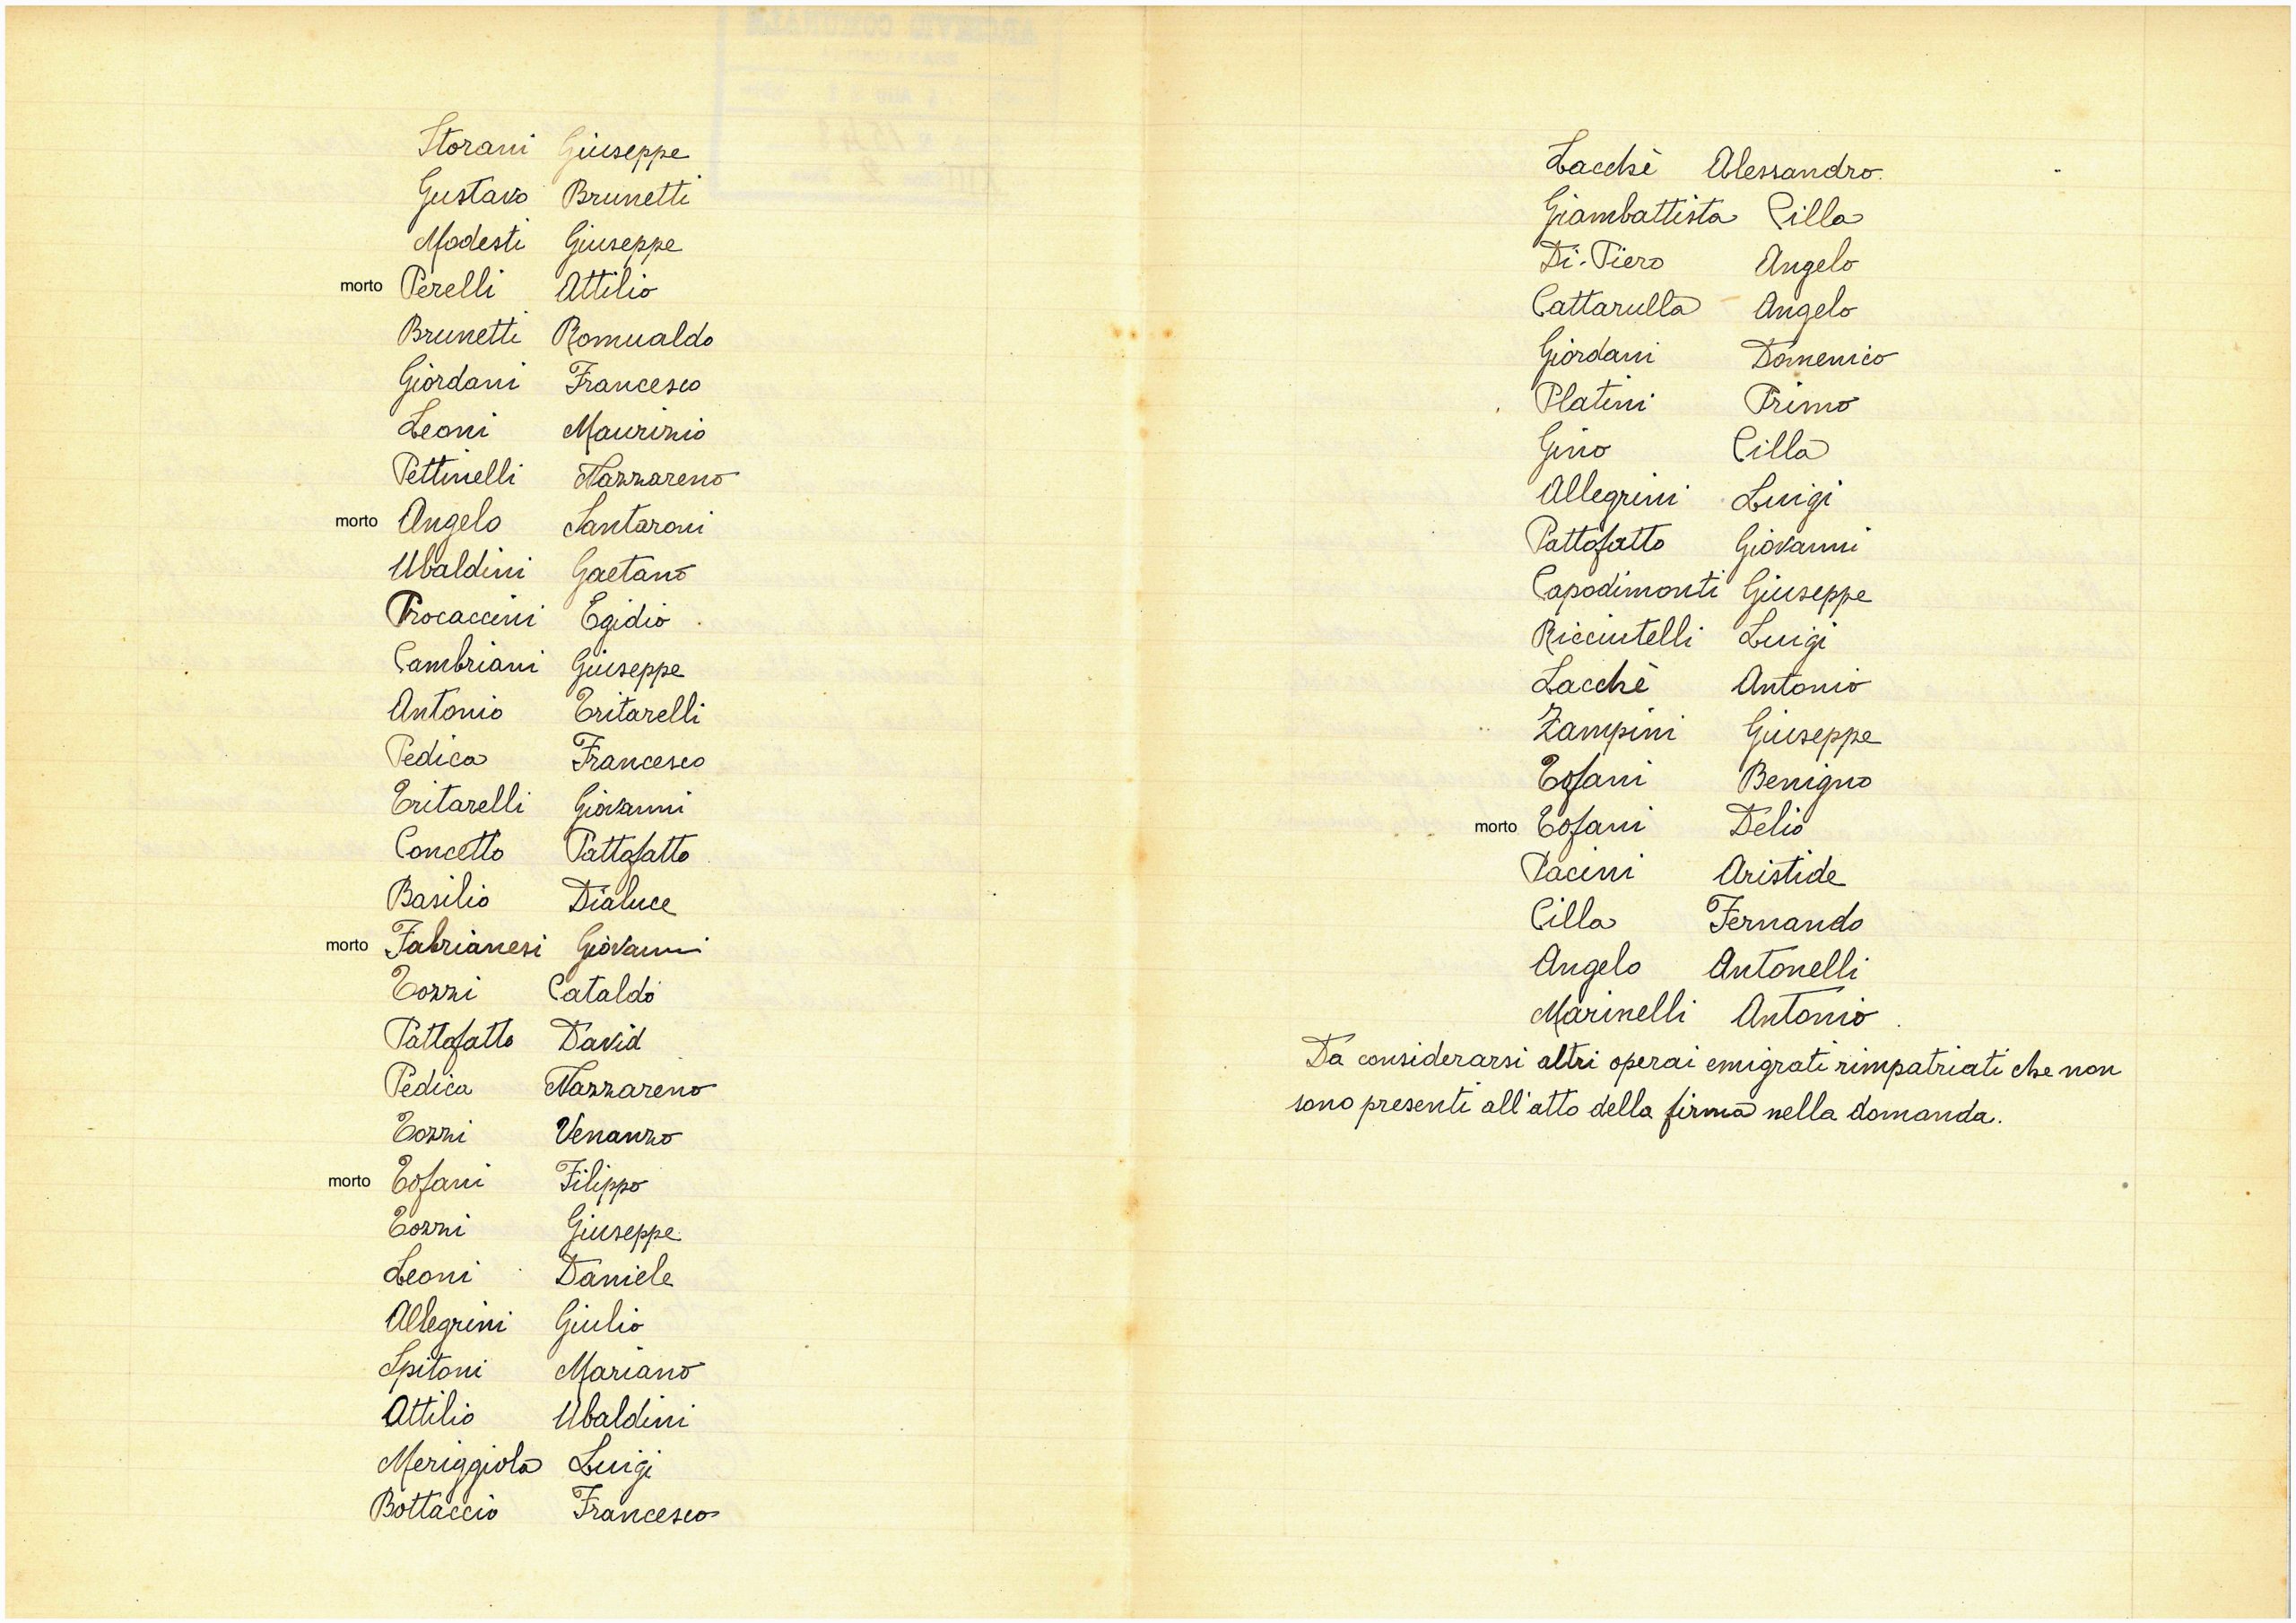 Storani Giuseppe
Gustavo Brunetti
Modesti Giuseppe
morto Perelli Attilio
Brunetti Romualdo
Giordani Francesco
Leoni Maurizio
Pettinelli Nazzareno
morto Angelo Santaroni
Ubaldini Gaetano
Procaccini Egidio
Cambriani Giuseppe
Antonio Tritarelli
Pedica Francesco
Tritarelli Giovanni
Concetto Pattofatto
Basilio Dialuce
morto Fabrianesi Giovanni
Tozzi Cataldo
Pattofatto David
Pedica Nazzareno
Tozzi Venanzo
morto Tofani Filippo
Tozzi Giuseppe
Leoni Daniele
Allegrini Giulio
Spitoni Mariano
Attilio Ubaldini
Meriggiola Luigi
Bottaccio Francesco
Lacchè Alessandro.
Giambattista Cilla
Di-Piero Angelo
Cattarulla Angelo
Giordani Domenico
Platini Primo
Gino Cilla
Allegrini Luigi
Pattofatto Giovanni
Capodimonti Giuseppe
Ricciutelli Luigi
Lacchè Antonio
Zampini Giuseppe
Tofani Benigno
morto Tofani Delio
Pacini Aristide
Cilla Fernando
Angelo Antonelli
Marinelli Antonio
Da considerarsi altri operai emigrati rimpatriati che non
sono presenti all'atto della firma nella domanda.